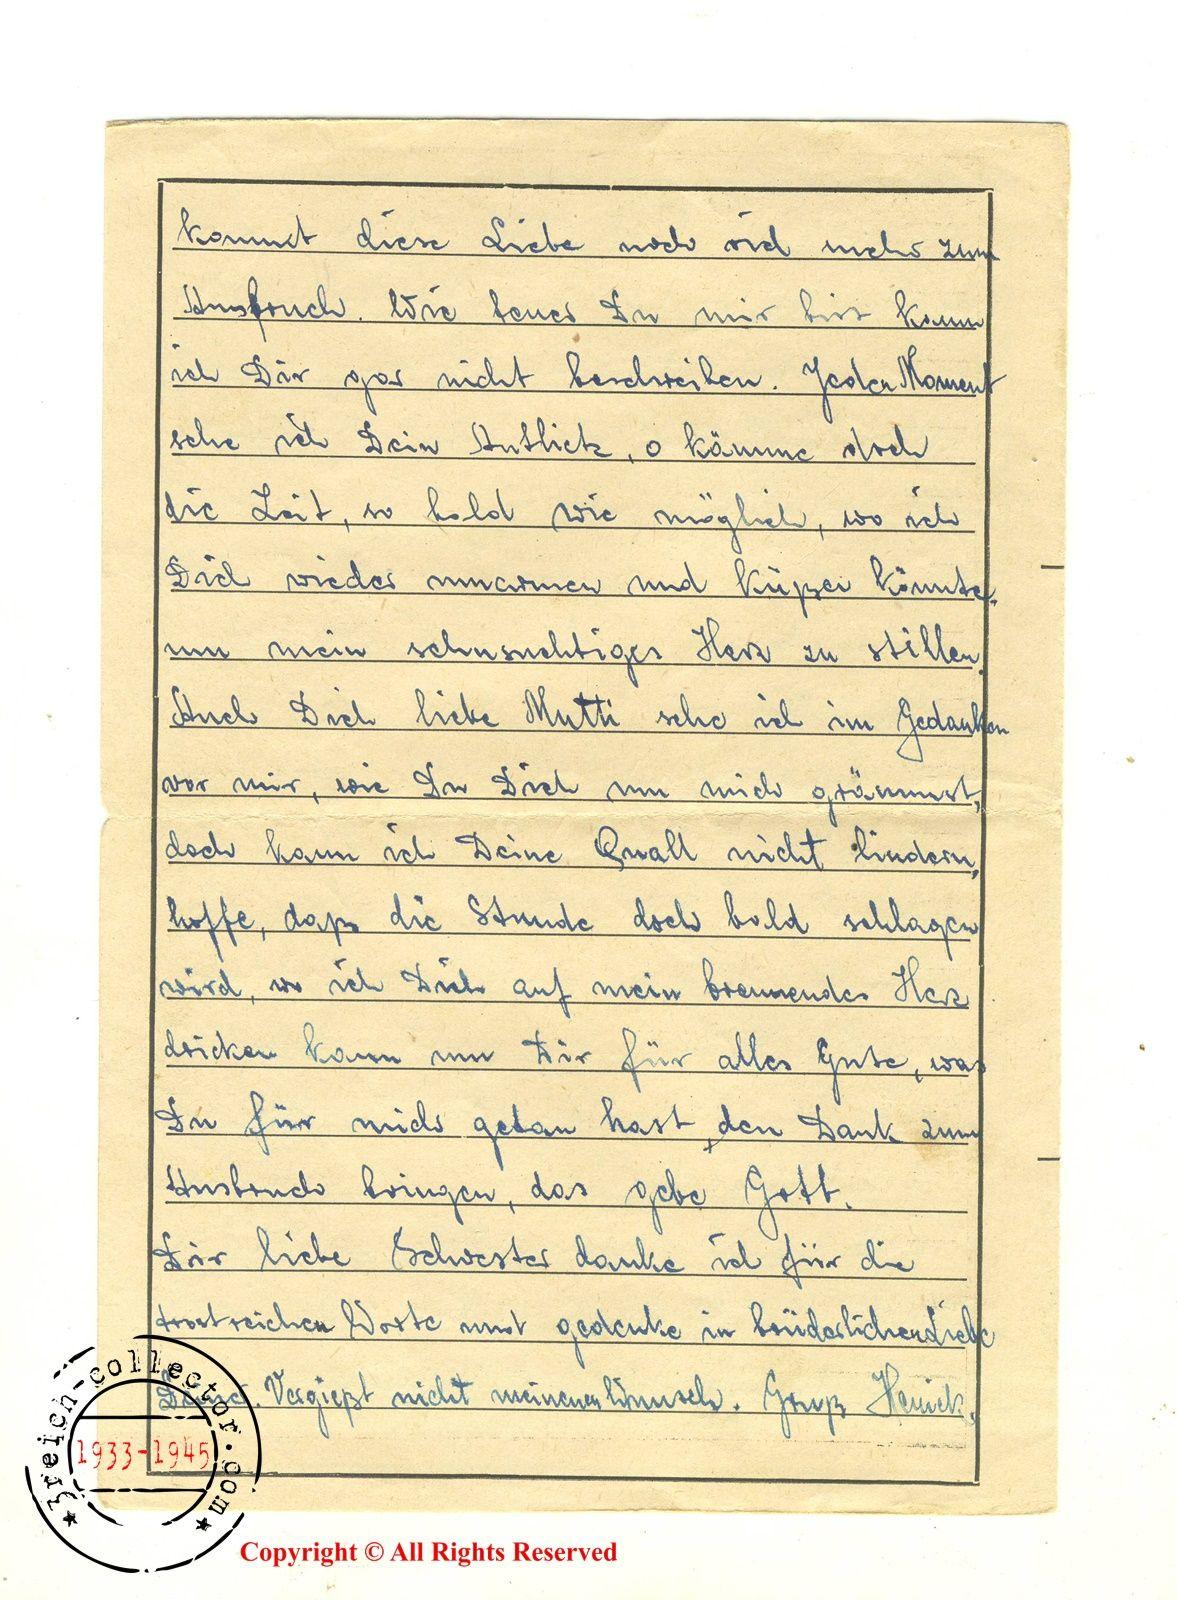 kommt diese Liebe noch viel mehr zum
Ausbruch. Wie teuer Du mir bist kann
ich Dir gar nicht beschreiben. Jeden Moment
sehe ich Dein Antlitz, o kämme doch
die Zeit, so bald wie möglich, wo ich
Dich wieder umarmen und küßen könnte,
um mein sehnsuchtiges Herz zu stillen.
Auch Dich liebe Mutti sehe ich im Gedanken
vor mir, wie Du Dich um mich grämmst,
doch kann ich Deine Quall nicht lindern,
hoffe, daß die Stunde doch bald schlagen
wird, wo ich Dich auf mein brennendes Herz
drücken kann um Dir für alles Gute, was
Du für mich getan hast, den Dank zum
Ausbruch bringen, das gebe Gott.
Dir liebe Schwester danke ich für die
trostreichen Worte und gedenke in brüderlichen Liebe
Deiner. Vergießt nicht meinen Wunsch. Gruß
3reich-collector.com
1933-1945
Copyright © All Rights Reserved